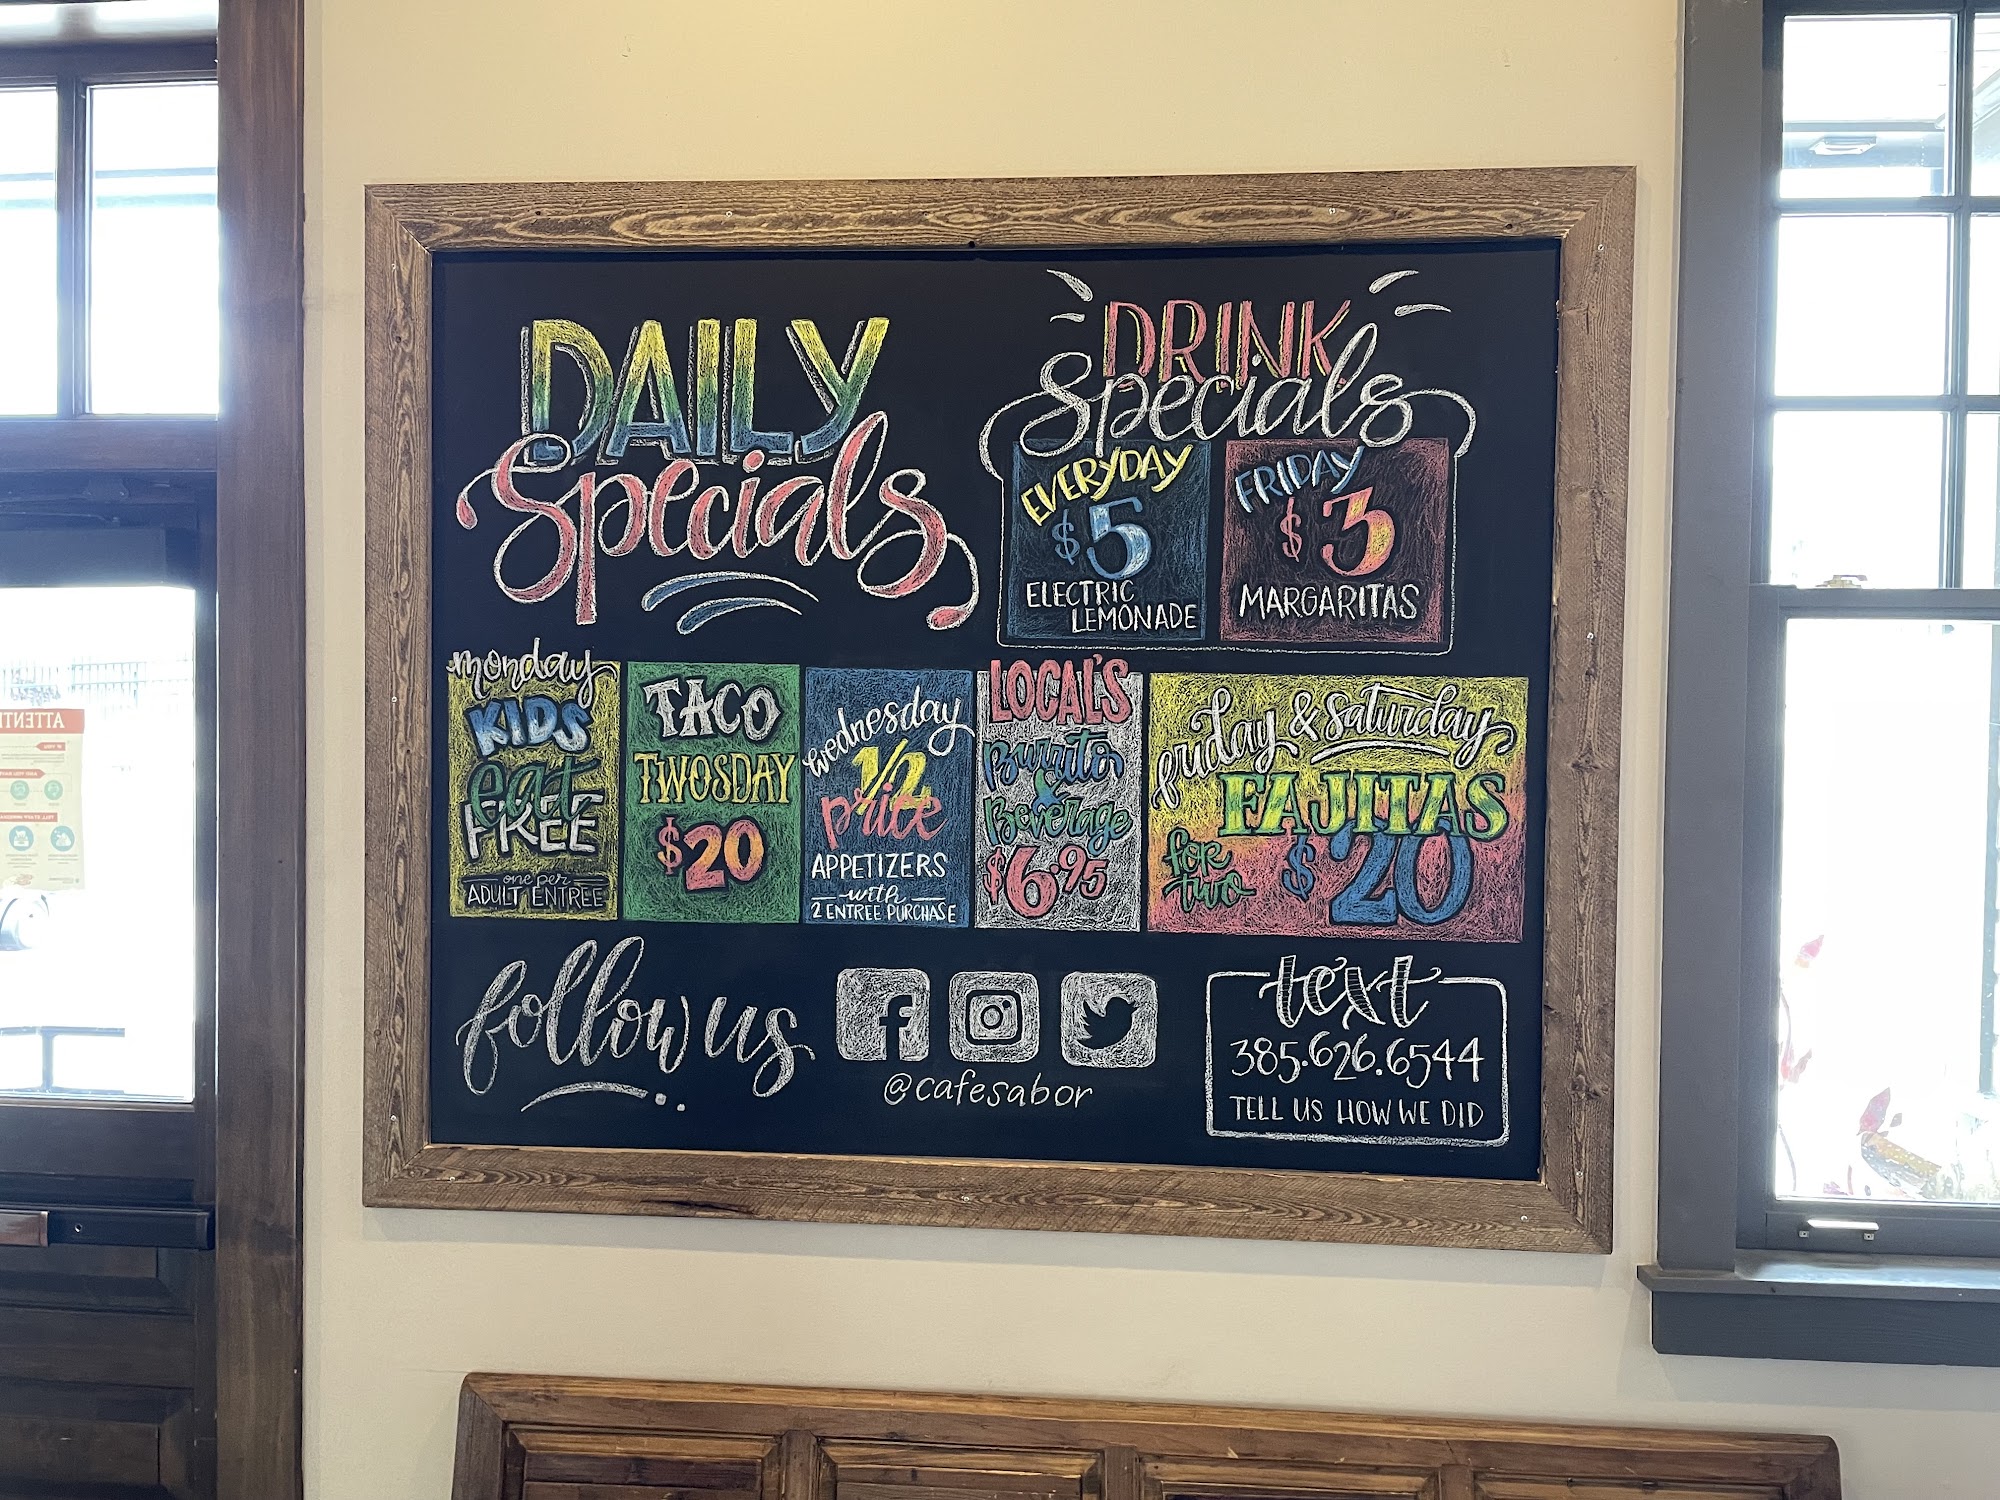 DAILY
Specials
DRINK
Specials
EVERYDAY
$5
ELECTRIC
LEMONADE
FRIDAY
$3
MARGARITAS
monday
KIDS
eat
FREE
one per
ADULT ENTREE
TACO
TWOSDAY
$20
wednesday
1/2
price
APPETIZERS
with
2 ENTREE PURCHASE
LOCAL'S
Burrito
&
Beverage
$6.95
friday & saturday
FAJITAS
for
two
$20
follow us
@cafesabor
text
385.626.6544
TELL US HOW WE DID